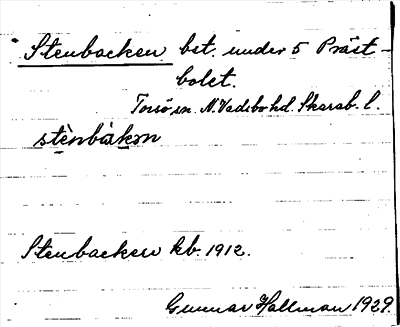 Stenbacken bet. under 5 Präst-
bolet.
Torsö sn. N. Vadsbo hd. Skarab. l.
stènbàkən
Stenbacken kb. 1912.
Gunnar Hallman 1929.